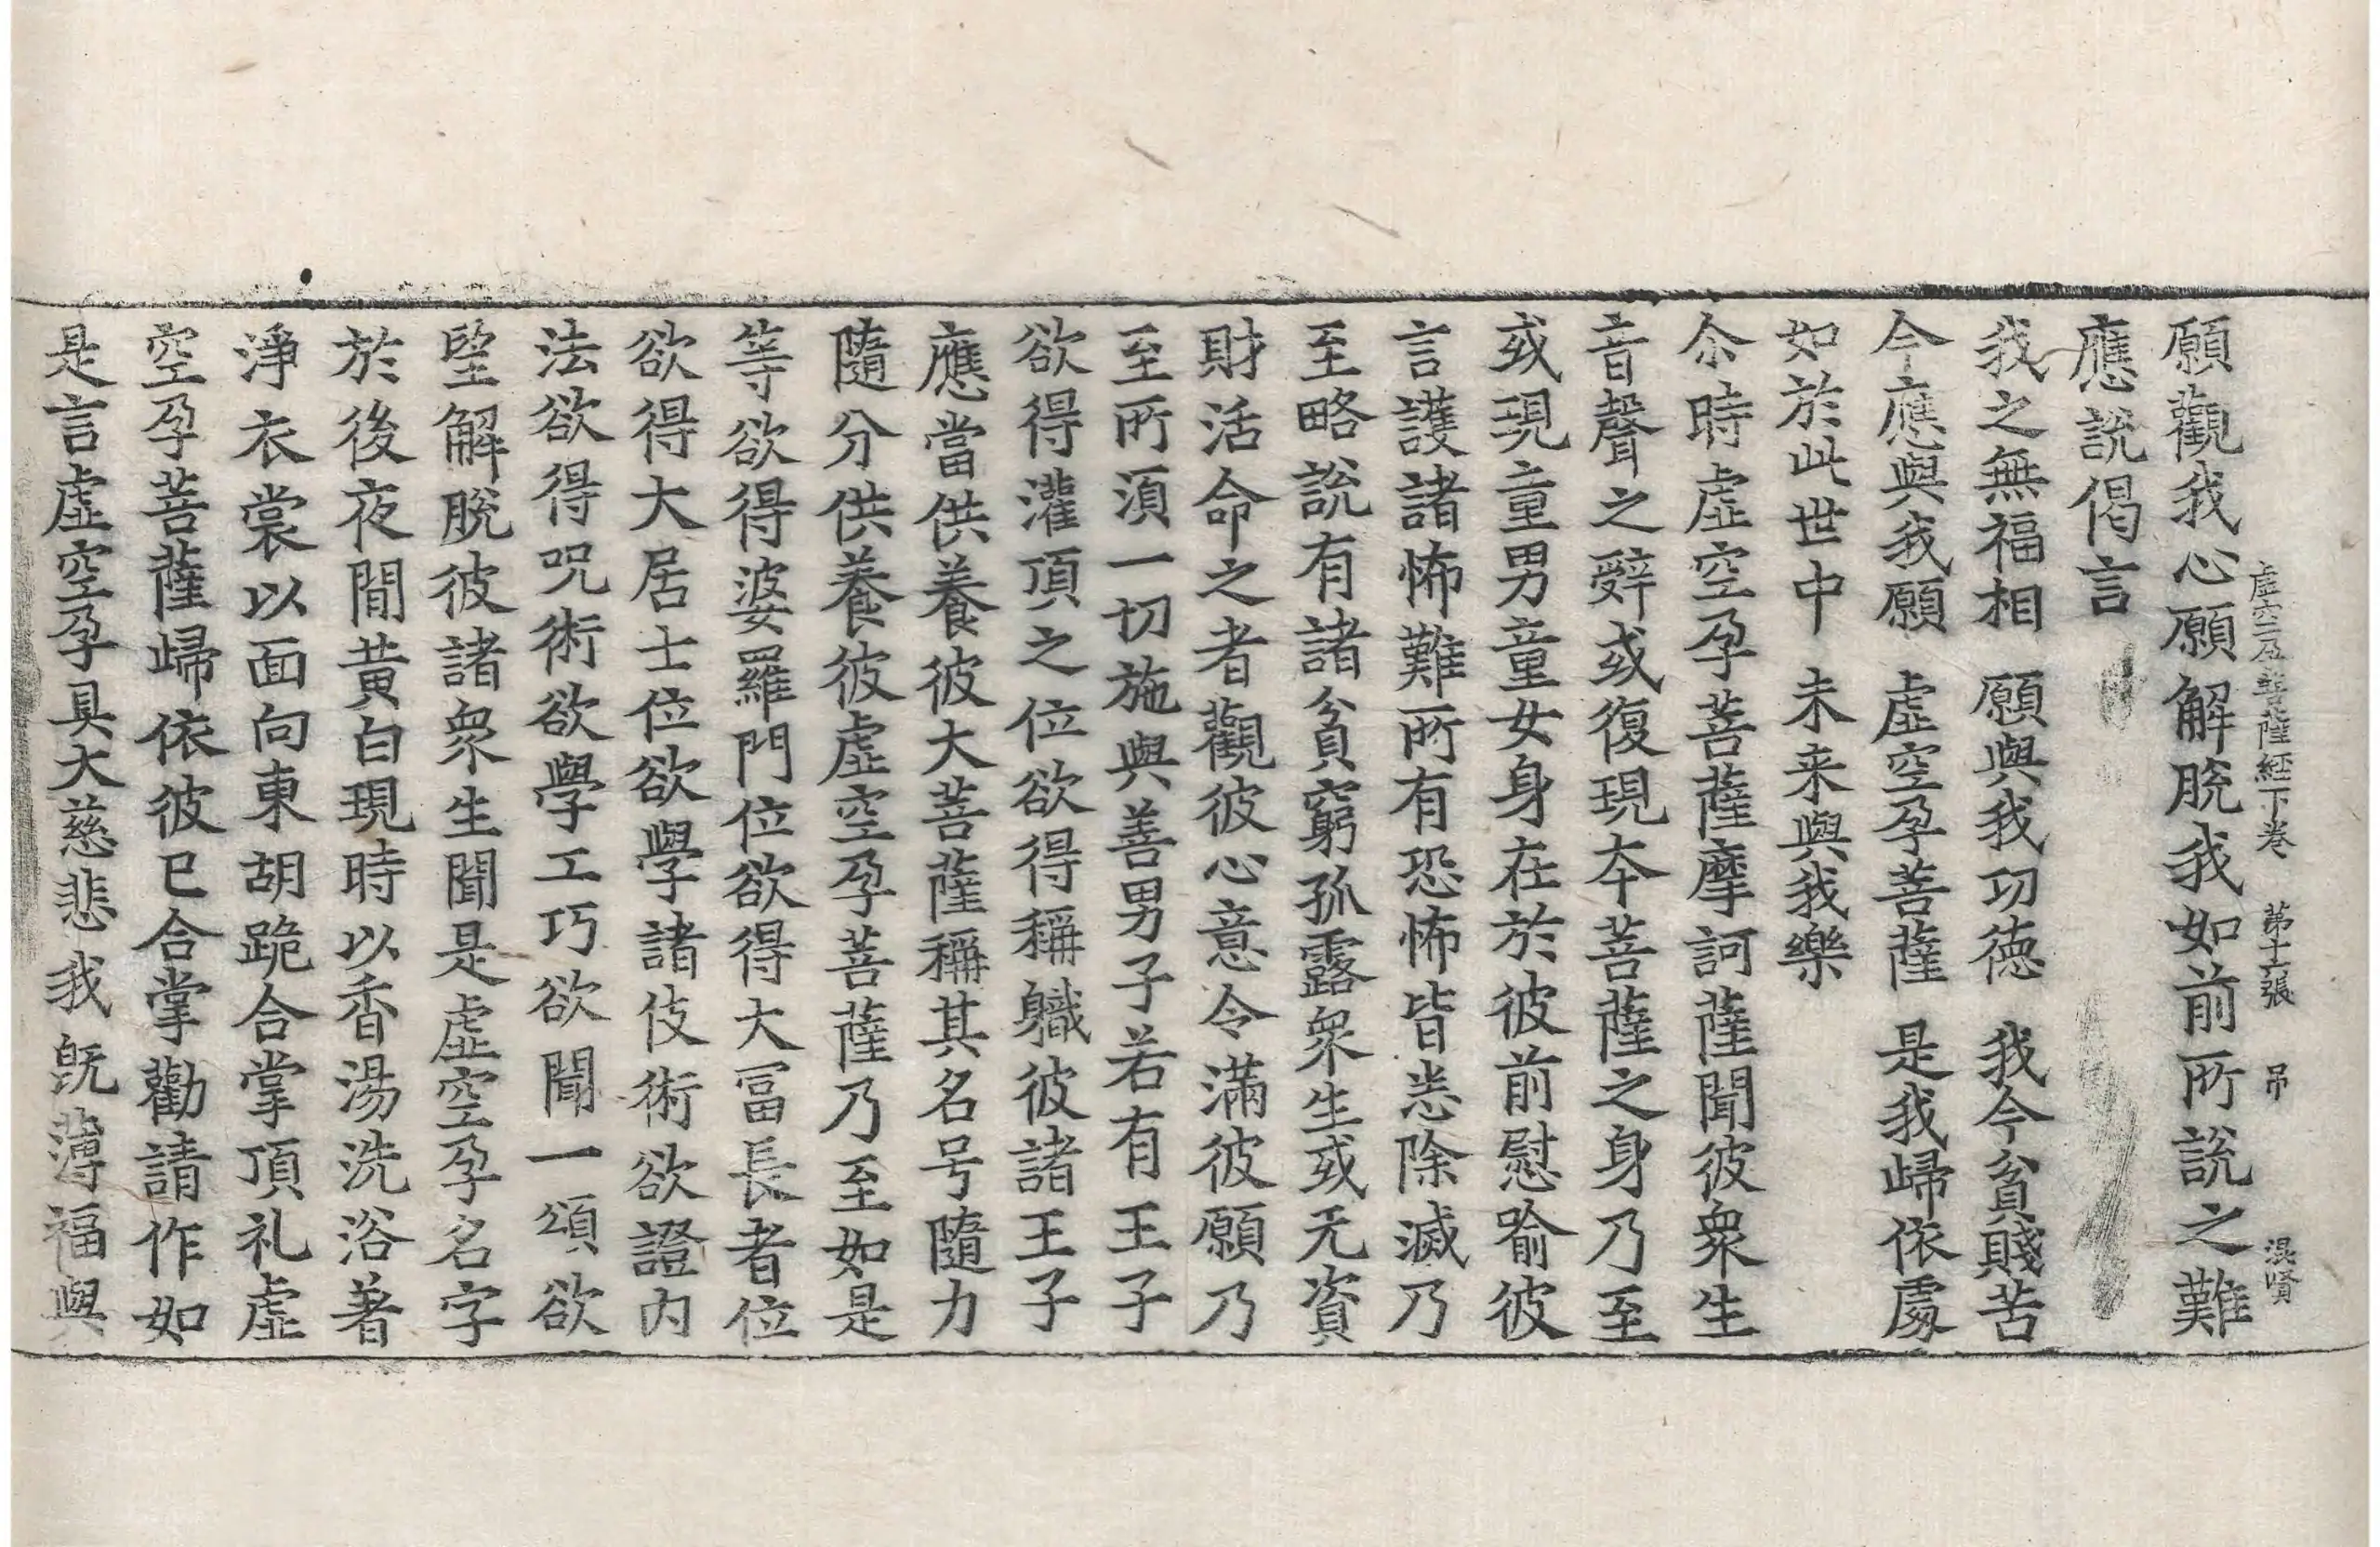 虛空孕菩薩經下卷 第十六張 吊 混賢
願觀我心願解脫我如前所說之難
應說偈言
我之無福相 願與我功德 我今貧賤苦
今應與我願 虛空孕菩薩 是我歸依處
如於此世中 未来與我樂
尒時虛空孕菩薩摩訶薩聞彼衆生
音聲之辝或復現夲菩薩之身乃至
或現童男童女身在於彼前慰喻彼
言護諸怖難所有恐怖皆悉除滅乃
至略說有諸貧窮孤露衆生或无資
財活命之者觀彼心意令滿彼願乃
至所湏一切施與善男子若有王子
欲得灌頂之位欲得稱軄彼諸王子
應當供養彼大菩薩稱其名号隨力
隨分供養彼虛空孕菩薩乃至如是
等欲得婆羅門位欲得大冨長者位
欲得大居士位欲學諸伎術欲證內
法欲得呪術欲學工巧欲聞一頌欲
望解脫彼諸衆生聞是虛空孕名字
於後夜閒黃白現時以香湯洗浴著
淨衣裳以面向東胡跪合掌頂礼虛
空孕菩薩歸依彼已合掌勸請作如
是言虛空孕具大慈悲我旣薄福與